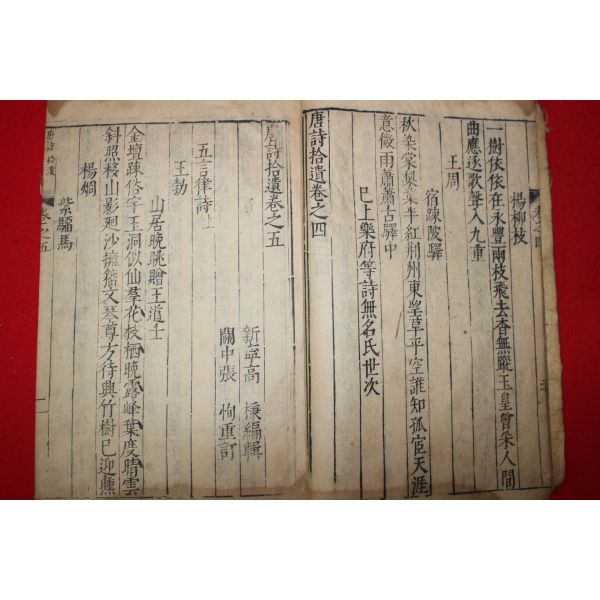 卷之四
楊柳枝
一樹依依在永豐兩枝飛去杳無蹤玉皇曾采人間
曲應逐歌聲入九重
王周
宿疎陂驛
秋染棠梨葉半紅荆州東望草平空誰知孤宦天涯
意微雨蕭蕭古驛中
已上樂府等詩無名氏世次
唐詩拾遺卷之四
唐詩拾遺卷之五
新寧高 棅編輯
關中張 恂重訂
五言律詩上
王勃
山居晚眺贈王道士
金壇疎俗宇玉洞似仙羣花枝栖晚露峰葉度晴雲
斜照移山影廻沙擁籀文琴尊方待興竹樹已迎曛
楊烱
紫騮馬
唐詩拾遺 卷之五 一